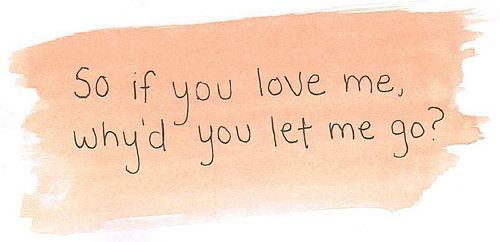 So if you love me,
why'd you let me go?